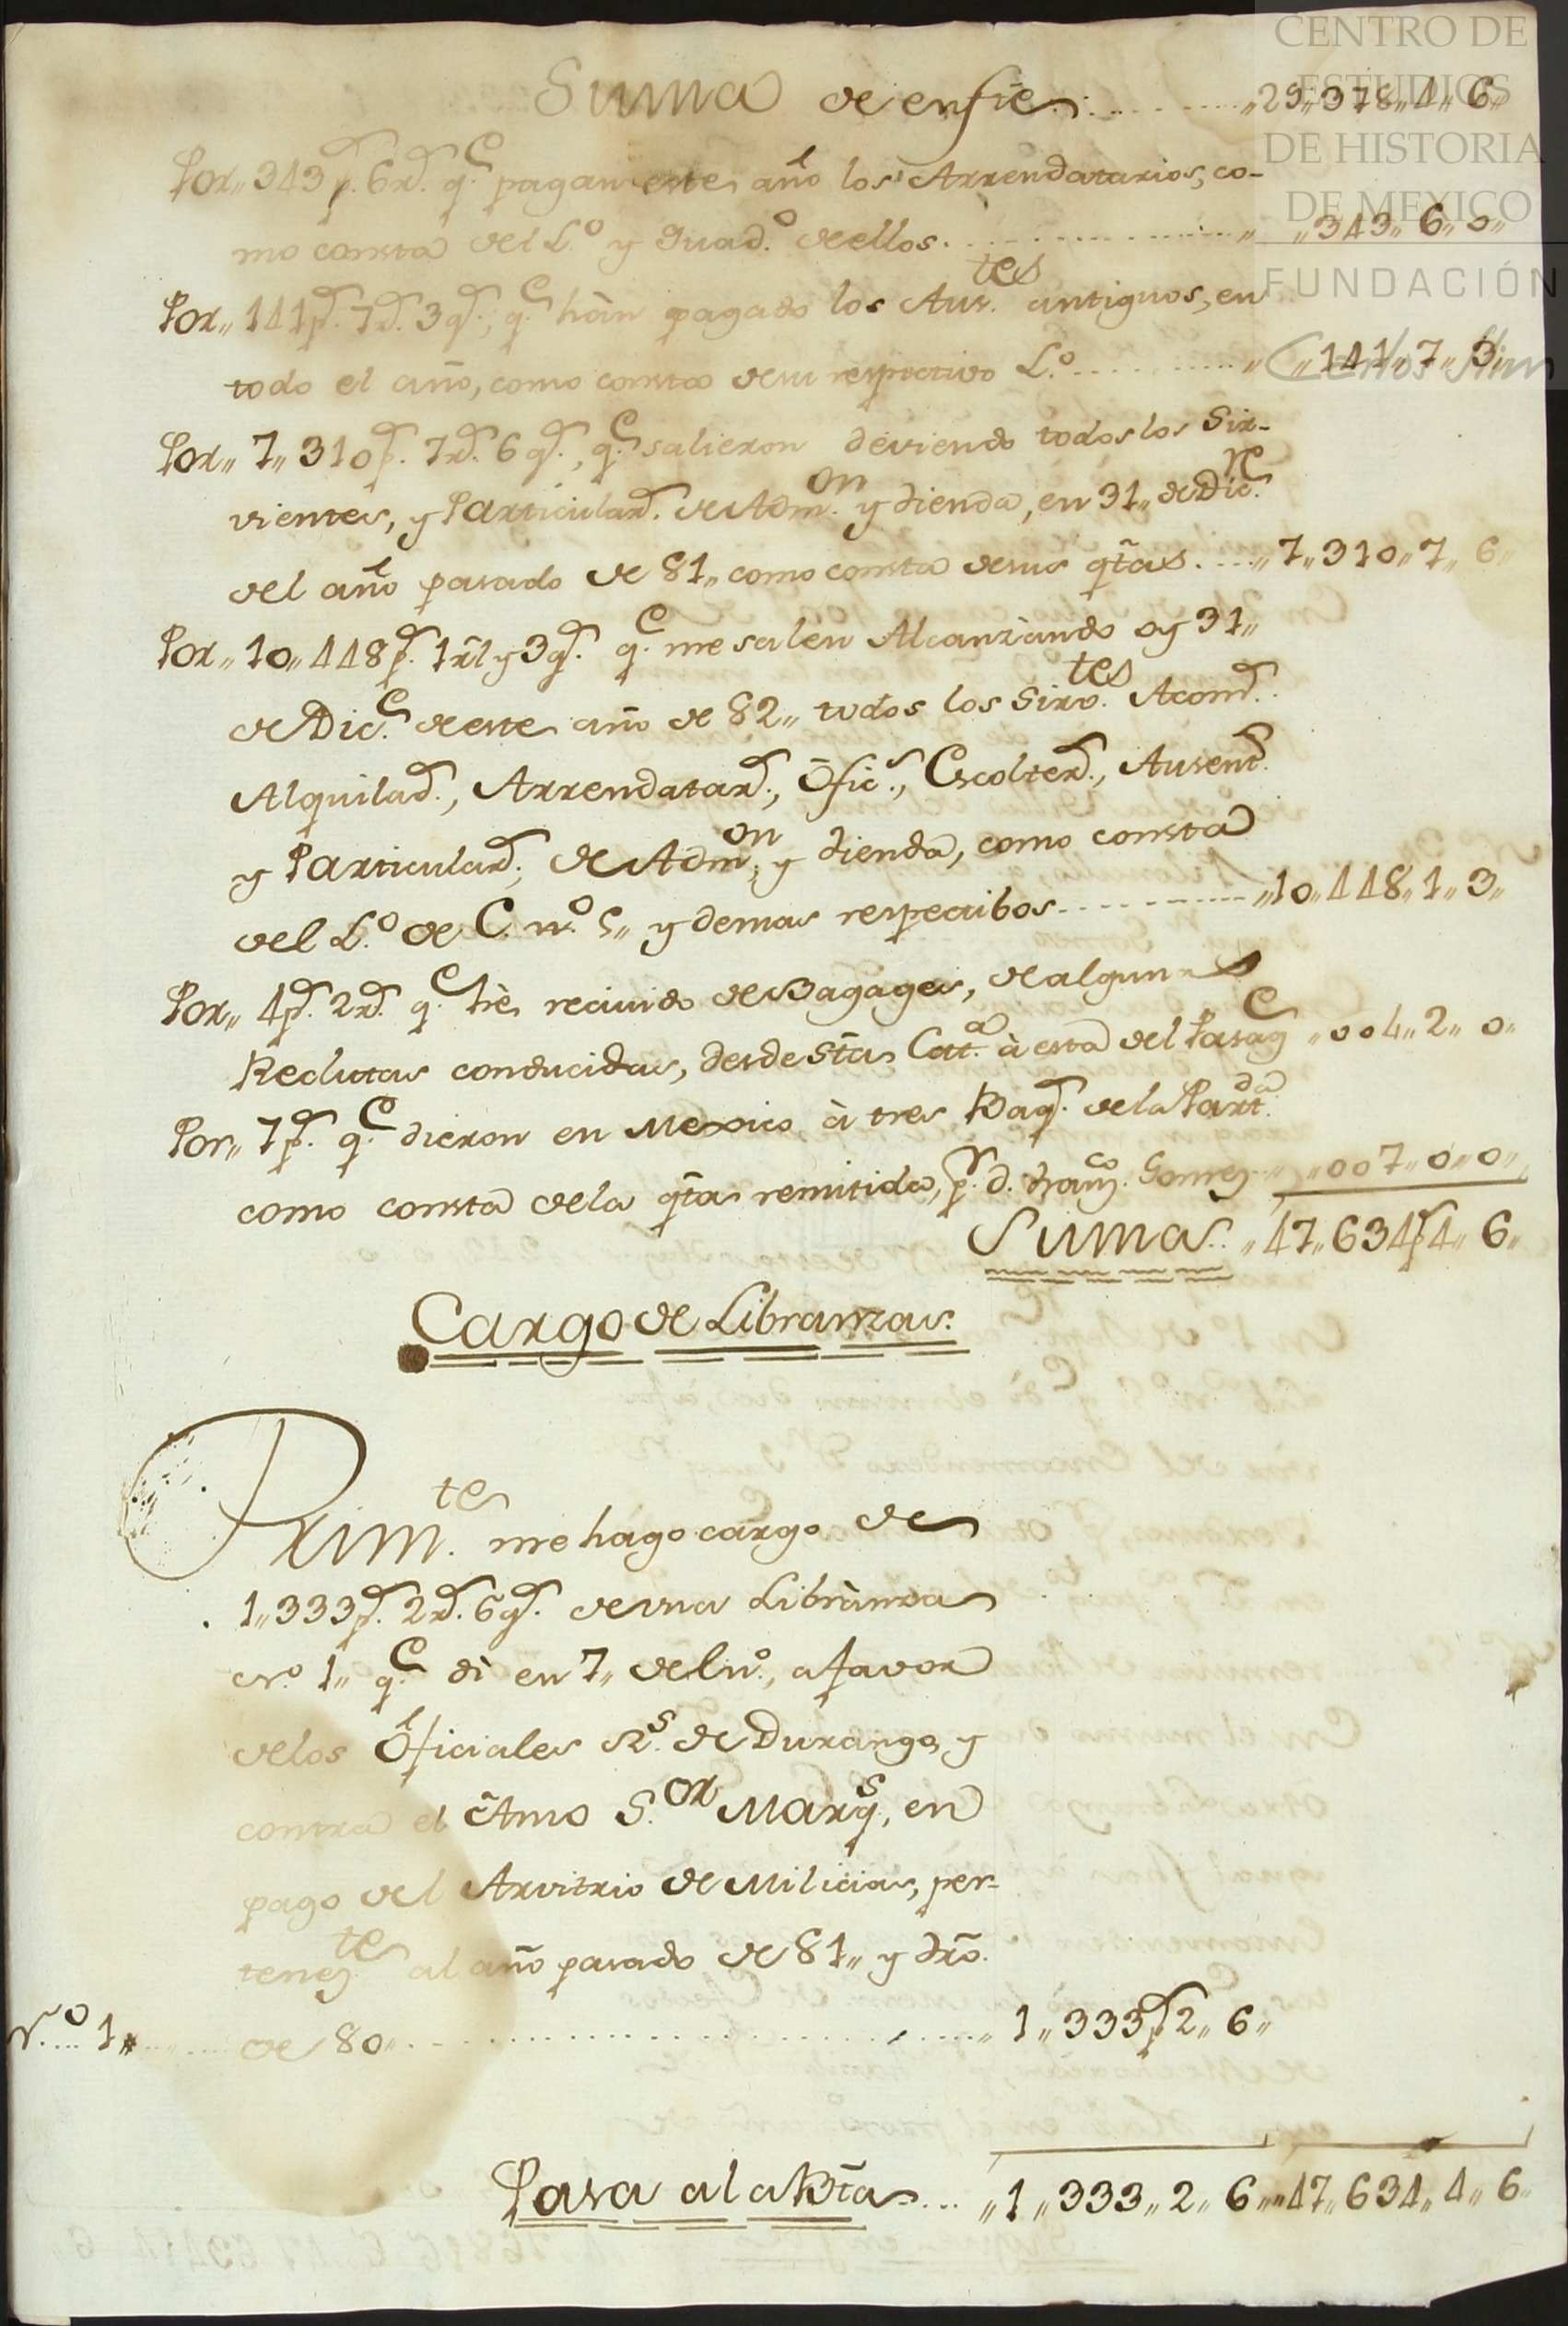 Suma de enfte. ,,29,,378,,4,,6,,
Por,, 343 p.s 6 r.s q.e pagan este año los Arrendatarios, co-
mo consta del L.o y Quad.o de ellos. ,, 343,, 6,, 0,,
Por,, 141 p.s 7 r.s 3 g.s, q.e hàn pagado los Aus.tes antiguos, en
todo el año, como consta de su respectivo L.o ,, 141,, 7,, 3,,
Por,, 7,, 310 p.s 7 r.s 6 g.s, q.e salieron deviendo todos los Sir-
vientes, y Particular.s de Adm.on y tienda, en 31,, de Dic.re
del año pasado de 81,, como consta de sus qtas. ,,7,,310,,7,, 6,,
Por,, 10,,448 p.s 1 rl y 3 g.s q.e me salèn Alcanzàndo oy 31,,
de Dic.e de este año de 82,, todos los Sirv.tes Acom.s
Alquilad.s, Arrendatar.s, Ofic.s, Escolter.s, Ausent.s
y Particular.s, de Adm.on, y tienda, como consta
del L.o de C. n.o 5,, y demas respectibos ,,10,,448,,1,,3,,
Por,, 4 p.s 2 r.s q.e hè recivido de Bagages, de algunas
Reclutas conducidas, desde Sta. Cat.a à esta del Pasag.e ,,004,,2,,0,,
Por,, 7 p.s q.e dieron en Mexico à tres Baq.s de la Part.da
como consta de la qta remitida, p.r d. Fran.co Gomez ,,007,,0,,0,,
Suma. ,,47,,634 p.s 4,, 6,,
Cargo de Libranzas.
Prim.te me hago cargo de
1,,333 p.s 2 r.s 6 g.s de una Librànza
N.o 1,, q.e dì en 7,, de En.o, a favor
de los Oficiales R.s de Durango, y
contra el Amo S.or Marq.s, en
pago del Arvitrio de Milicias, per-
tenez.te al año pasado de 81,, y dro.
N.o 1,, de 80,, ,, 1,, 333 p.s 2,, 6,,
Pasa a la Bta ,,1,,333,,2,,6,,,,47,,634,,4,,6,,
CENTRO DE
ESTUDIOS
DE HISTORIA
DE MEXICO
FUNDACIÓN
Carlos Slim